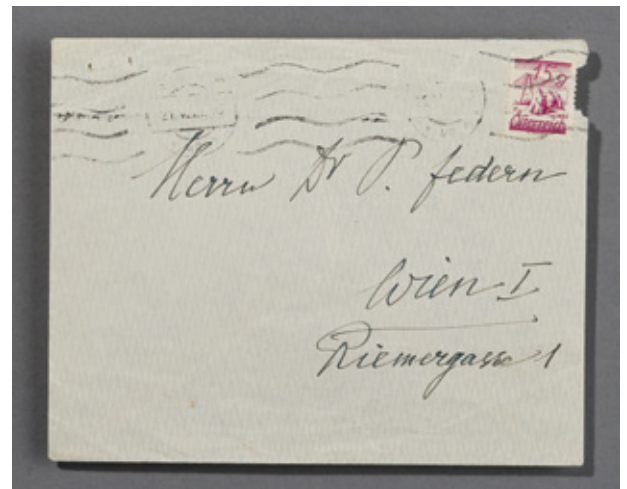 15g
Österreich
Herrn Dr P. Federn
Wien I
Riemergasse 1